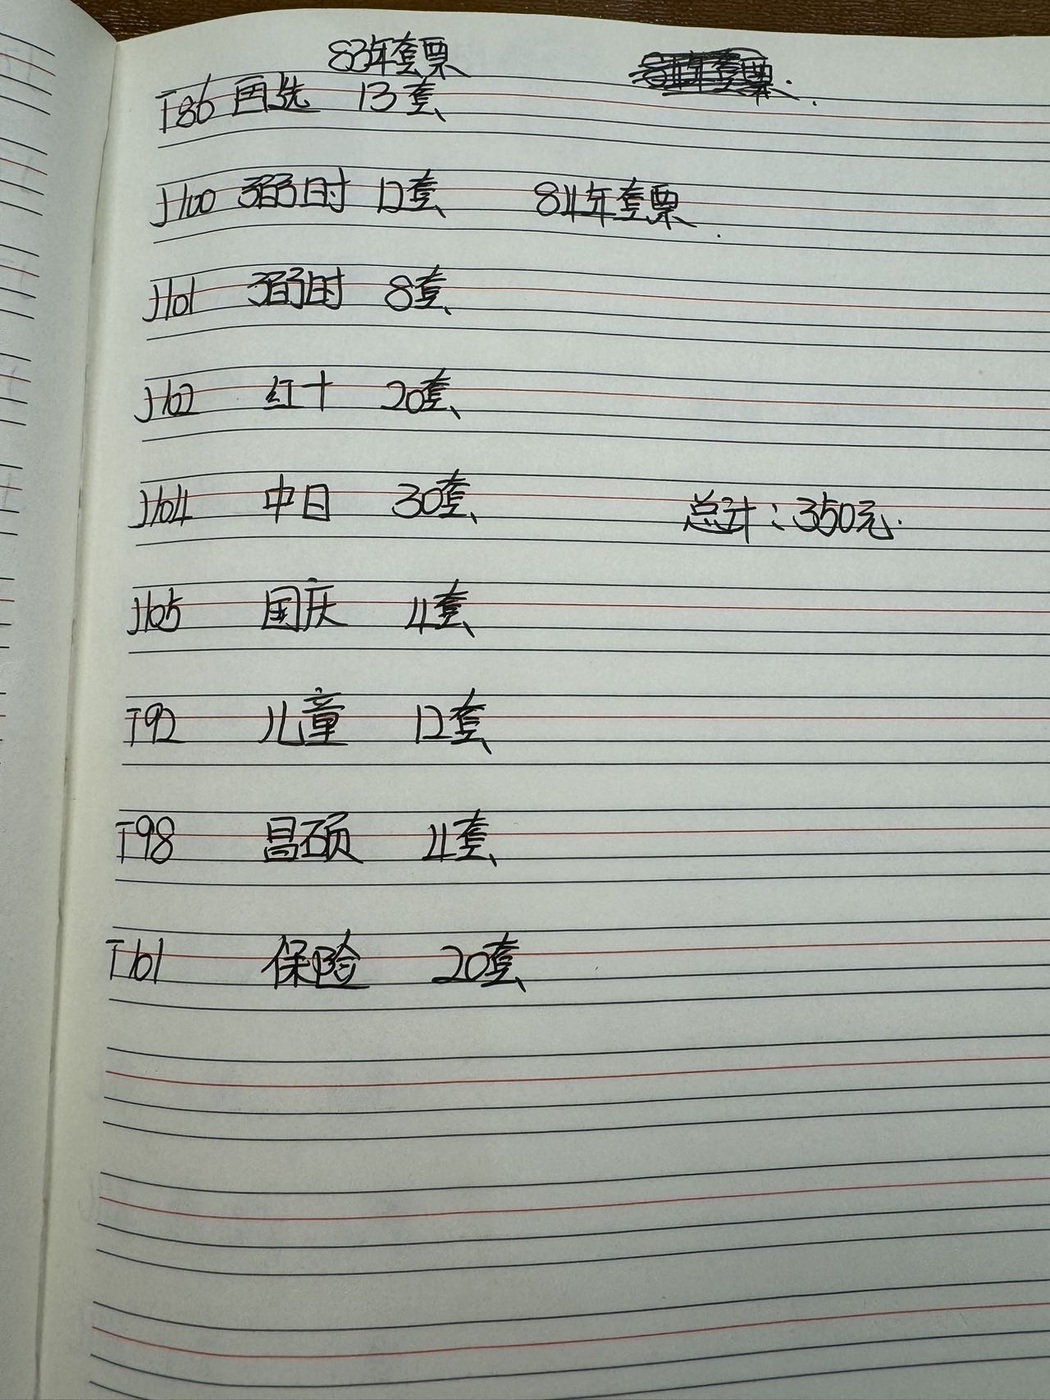 83年套票
T86 画选 13套
J100 弼时 12套 84年套票
J101 弼时 8套
J102 红十 20套
J104 中日 30套 总计：350元.
J105 国庆 4套
T92 儿童 12套
T98 昌硕 4套
T101 保险 20套